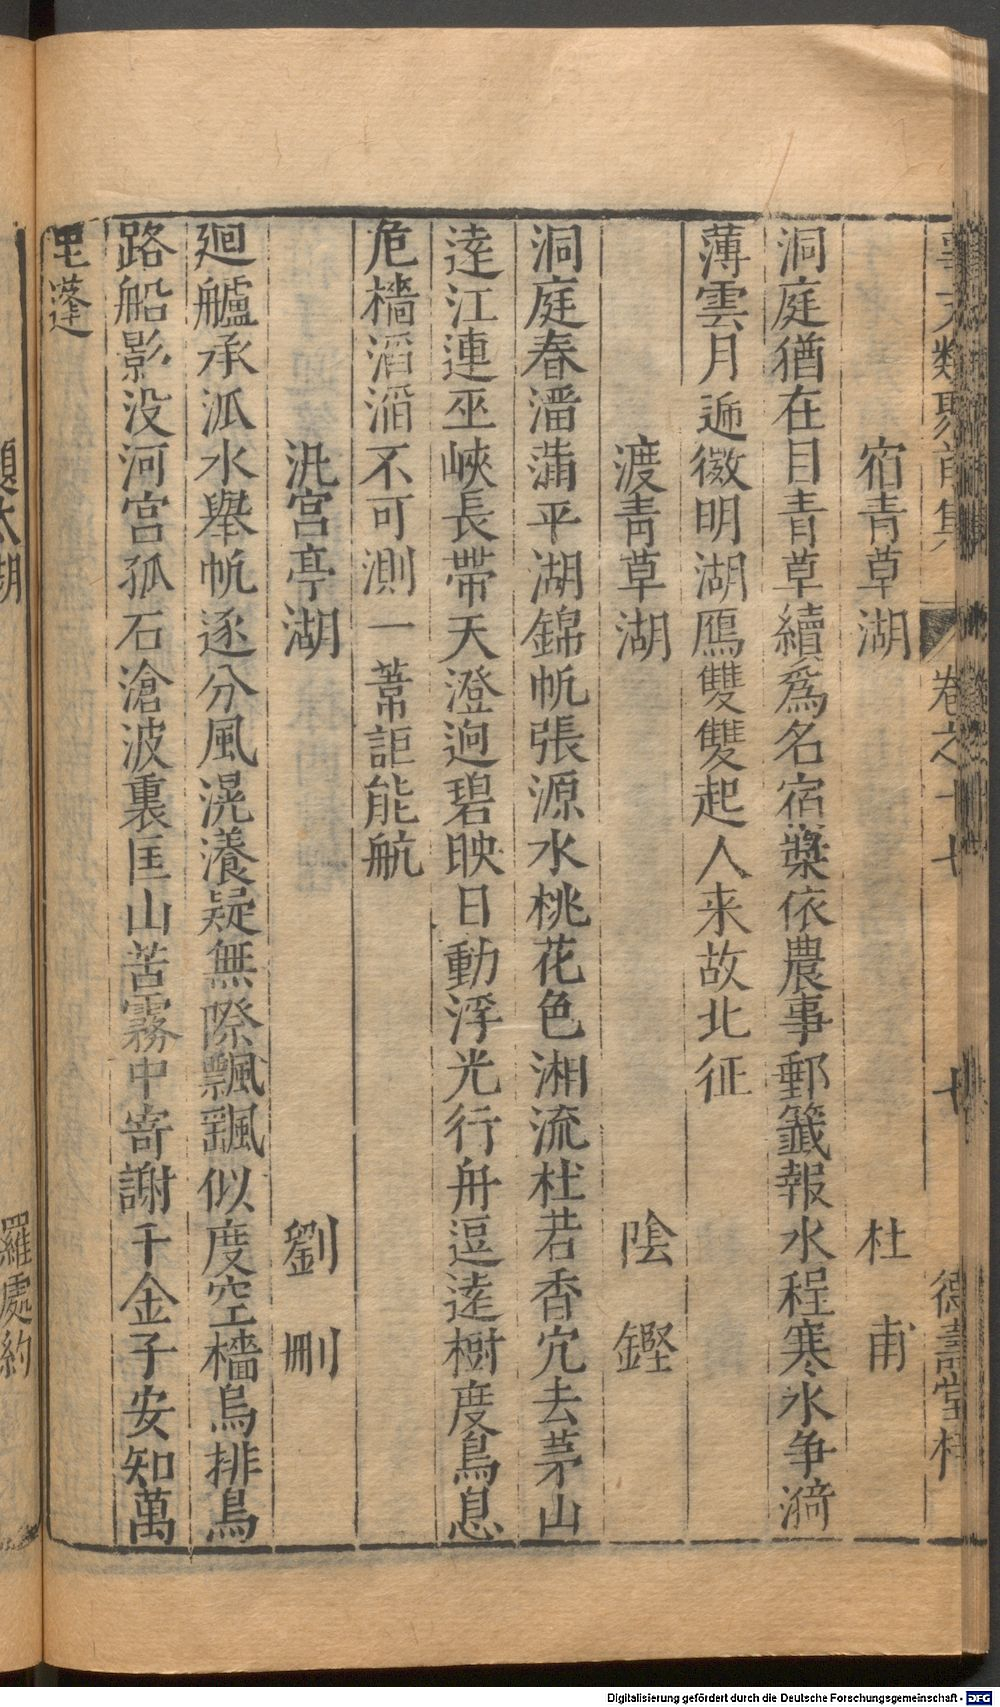 事文類聚前集 卷之十七 十 德壽堂梓
宿青草湖 杜甫
洞庭猶在目青草續爲名宿槳依農事郵籤報水程寒氷争𠋣
薄雲月逓微明湖鴈雙雙起人来故北征
渡青草湖 陰鏗
洞庭春潘蒲平湖錦帆張源水桃花色湘流杜若香穴去茅山
逹江連巫峽長帶天澄逈碧映日動浮光行舟逗逺樹度鳥息
危檣滔滔不可測一葦詎能航
汎宮亭湖 劉刪
廻艫承泒水舉帆逐分風滉瀁疑無際飄颻似度空檣烏排鳥
路船影没河宮孤石滄波裏匡山苦霧中寄謝千金子安知萬
里蓬
題太湖 羅處約
Digitalisierung gefördert durch die Deutsche Forschungsgemeinschaft - DFG